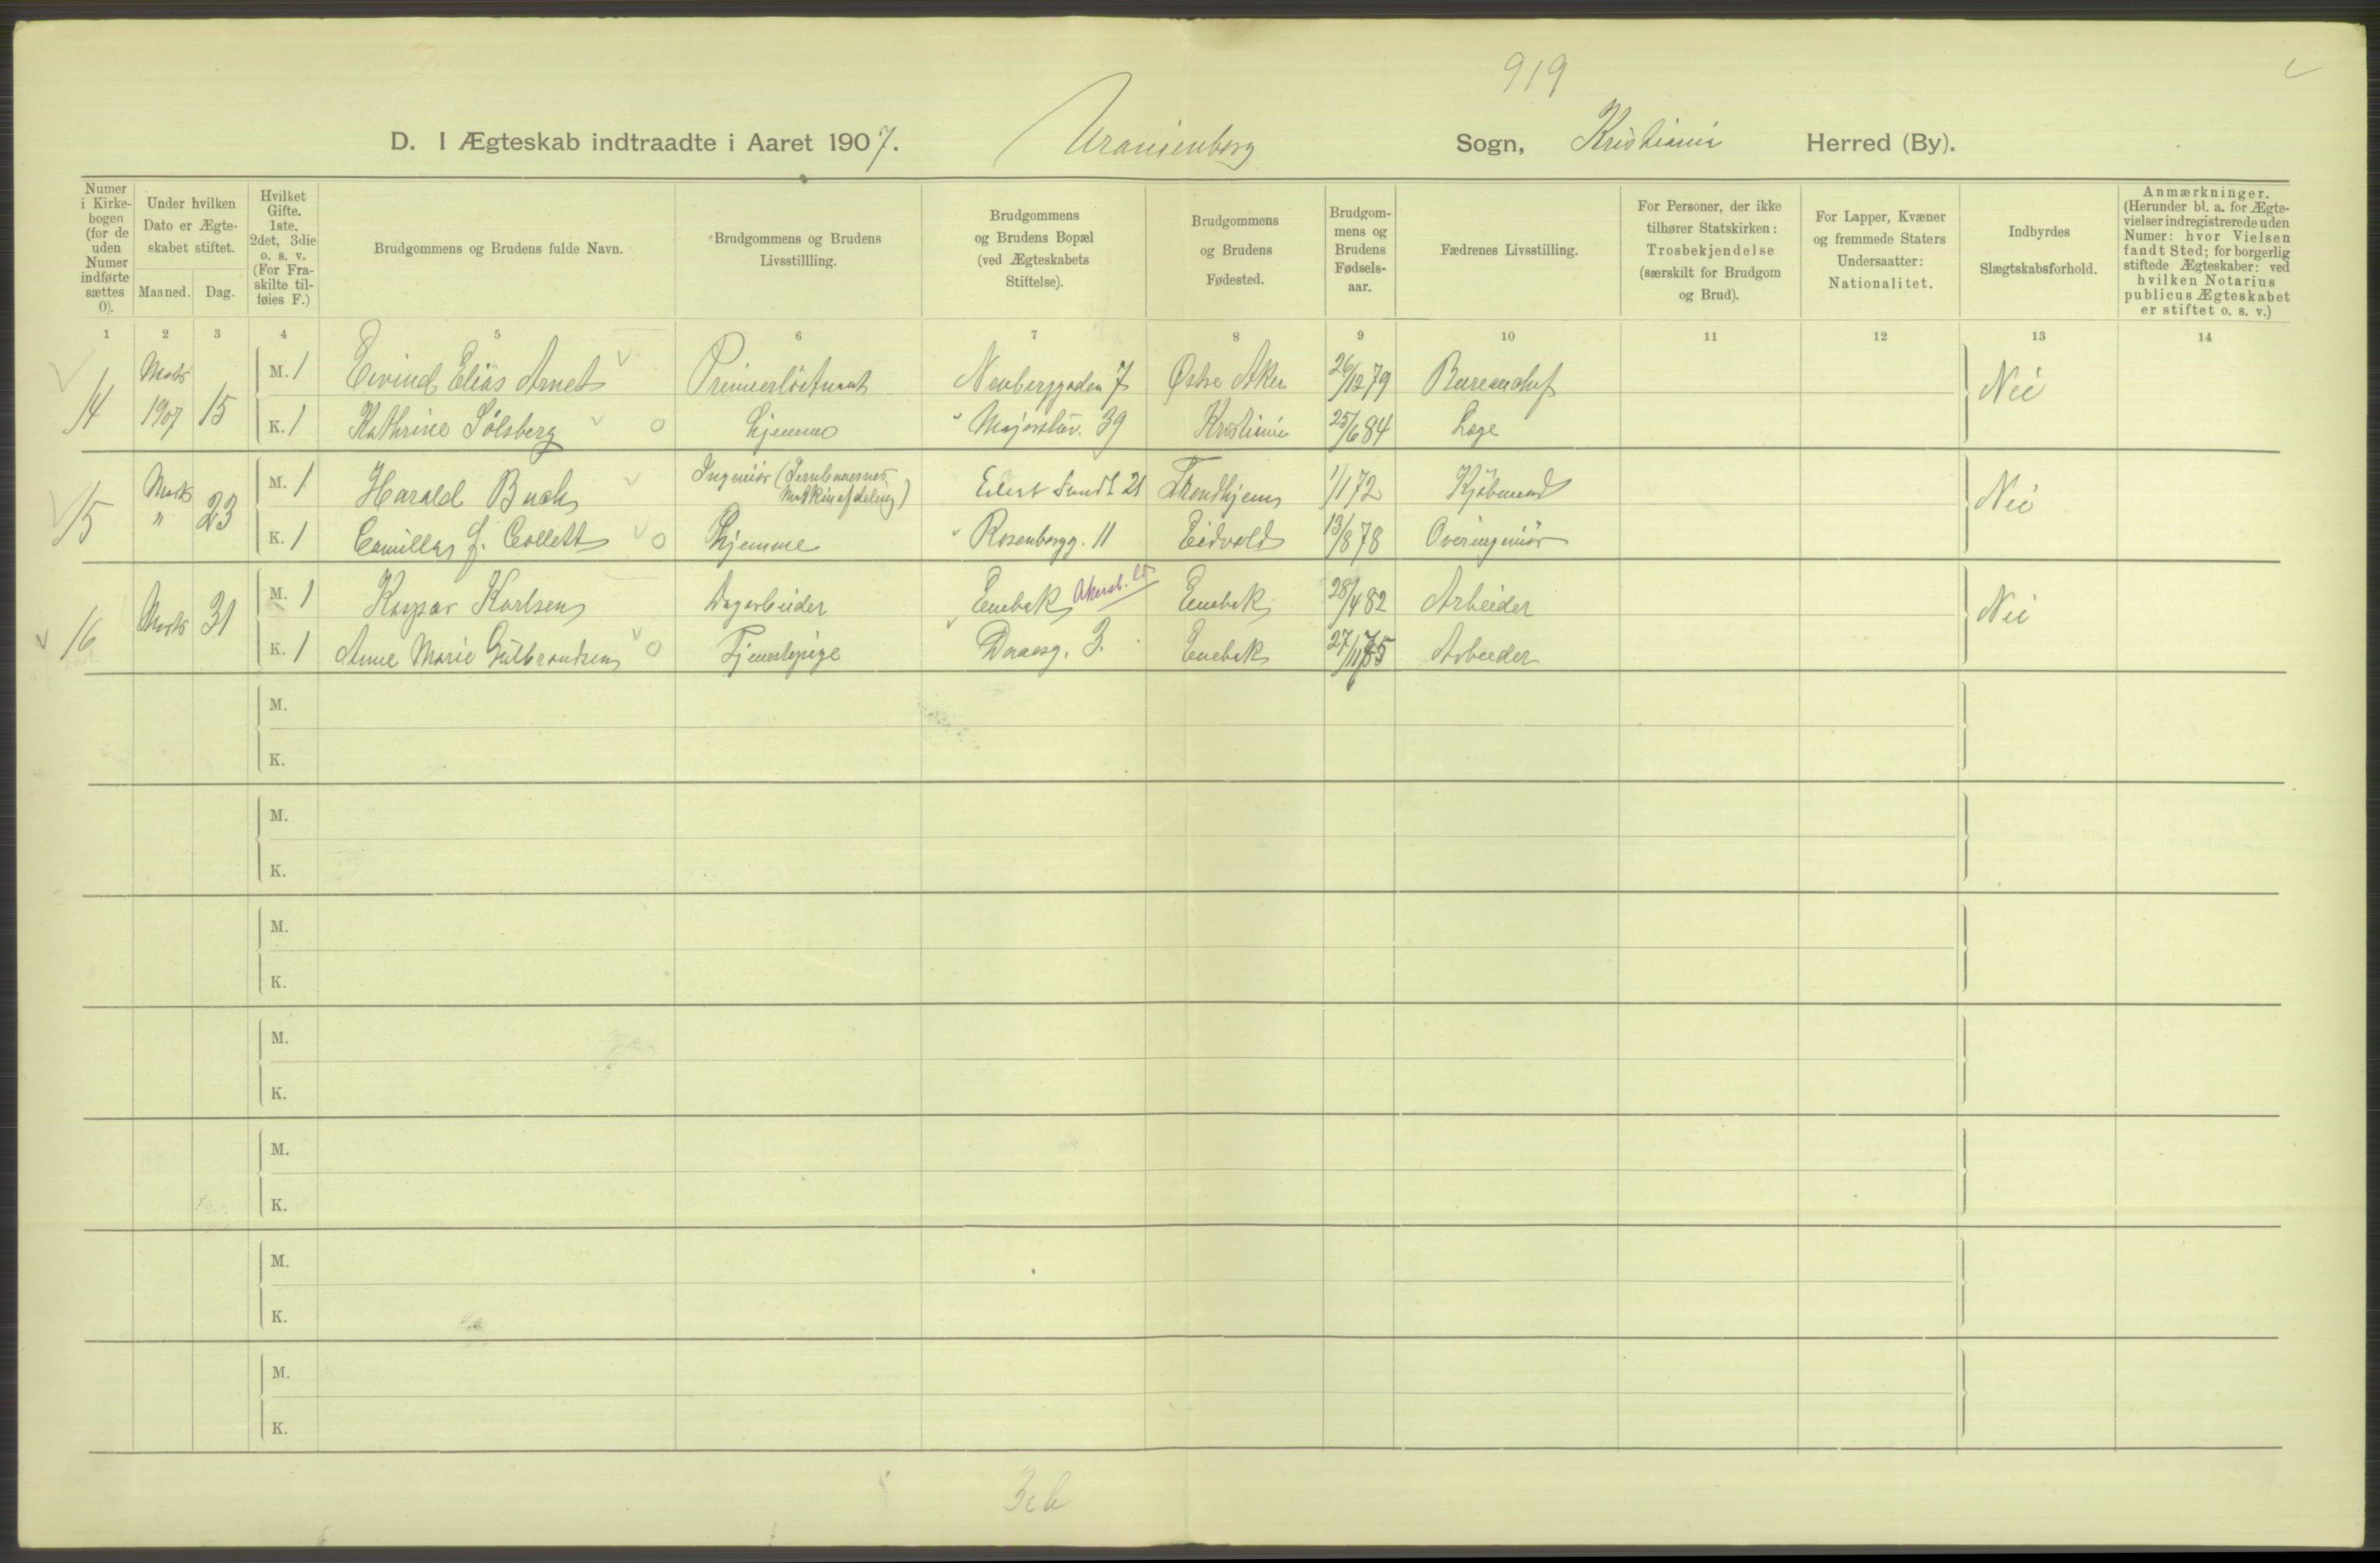 919
D. I Ægteskab indtraadte i Aaret 1907. Uranienborg Sogn, Kristiania Herred (By).
Numer i Kirkebogen (for de uden Numer indførte sættes 0).
Under hvilken Dato er Ægteskabet stiftet.
Maaned. Dag.
Hvilket Gifte. 1ste, 2det, 3die o. s. v. (For Fraskilte tilføies F.)
Brudgommens og Brudens fulde Navn.
Brudgommens og Brudens Livsstillling.
Brudgommens og Brudens Bopæl (ved Ægteskabets Stiftelse).
Brudgommens og Brudens Fødested.
Brudgommens og Brudens Fødselsaar.
Fædrenes Livsstilling.
For Personer, der ikke tilhører Statskirken: Trosbekjendelse (særskilt for Brudgom og Brud).
For Lapper, Kvæner og fremmede Staters Undersaatter: Nationalitet.
Indbyrdes Slægtskabsforhold.
Anmærkninger. (Herunder bl. a. for Ægtevielser indregistrerede uden Numer: hvor Vielsen fandt Sted; for borgerlig stiftede Ægteskaber: ved hvilken Notarius publicus Ægteskabet er stiftet o. s. v.)
1 2 3 4 5 6 7 8 9 10 11 12 13 14
14 Marts 1907 15 M. 1 Eivind Elias Arnet Premierløitnant Neuberggaden 7 Østre Aker 26/12 79 Bureauchef Nei
K. 1 Kathrine Sølsberg hjemme Majorstuv. 39 Kristiania 25/6 84 Læge
15 Marts " 23 M. 1 Harald Buch Ingeniør (Jernbanernes Maskinafdeling) Eilert Sundt 21 Trondhjem 1/1 72 Kjøbmand Nei
K. 1 Camilla J. Collett Hjemme Rosenborgg. 11 Eidvold 13/8 78 Overingeniør
16 Marts 31 M. 1 Kaspar Karlsen Dagarbeider Enebak Akersh. Enebak 28/4 82 Arbeider Nei
K. 1 Anne Marie Gulbrandsen Tjenestepige Daaesg. 3. Enebak 27/11 85 Arbeider
M.
K.
M.
K.
M.
K.
M.
K.
M.
K.
M.
K.
M.
K.